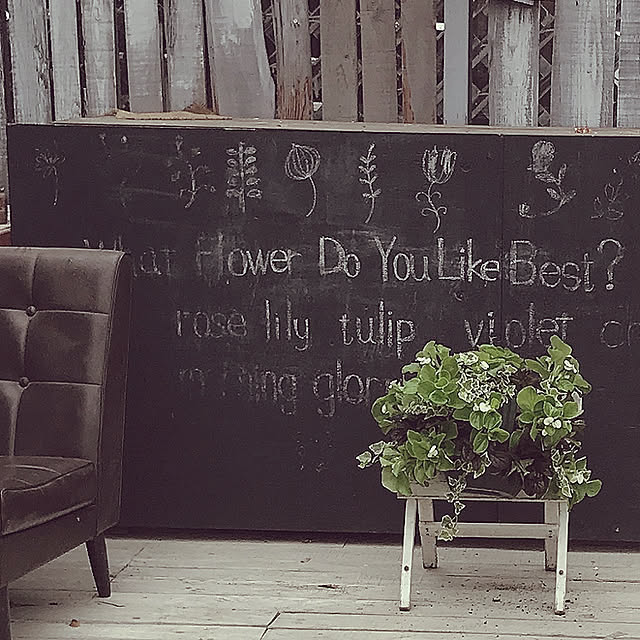 What Flower Do You Like Best?
rose lily tulip violet
morning glory